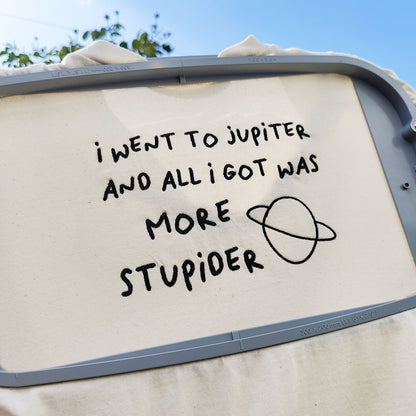 i WENT TO JUPiTER
AND ALL i GOT WAS
MORE
STUPiDER